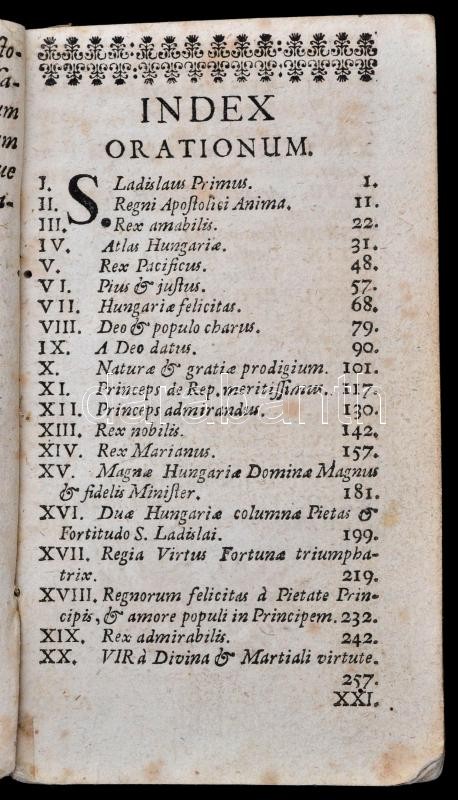 INDEX
ORATIONUM.
I. S. Ladislaus Primus. 1.
II. Regni Apoſtolici Anima. 11.
III. Rex amabilis. 22.
IV. Atlas Hungariæ. 31.
V. Rex Pacificus. 48.
VI. Pius & juſtus. 57.
VII. Hungariæ felicitas. 68.
VIII. Deo & populo charus. 79.
IX. A Deo datus. 90.
X. Naturæ & gratiæ prodigium. 101.
XI. Princeps de Rep. meritiſſimus. 117.
XII. Princeps admirandus. 130.
XIII. Rex nobilis. 142.
XIV. Rex Marianus. 157.
XV. Magnæ Hungariæ Dominæ Magnus
& fidelis Miniſter. 181.
XVI. Duæ Hungariæ columnæ Pietas &
Fortitudo S. Ladislai. 199.
XVII. Regia Virtus Fortunæ triumpha-
trix. 219.
XVIII. Regnorum felicitas à Pietate Prin-
cipis, & amore populi in Principem. 232.
XIX. Rex admirabilis. 242.
XX. VIR à Divina & Martiali virtute.
257.
XXI.